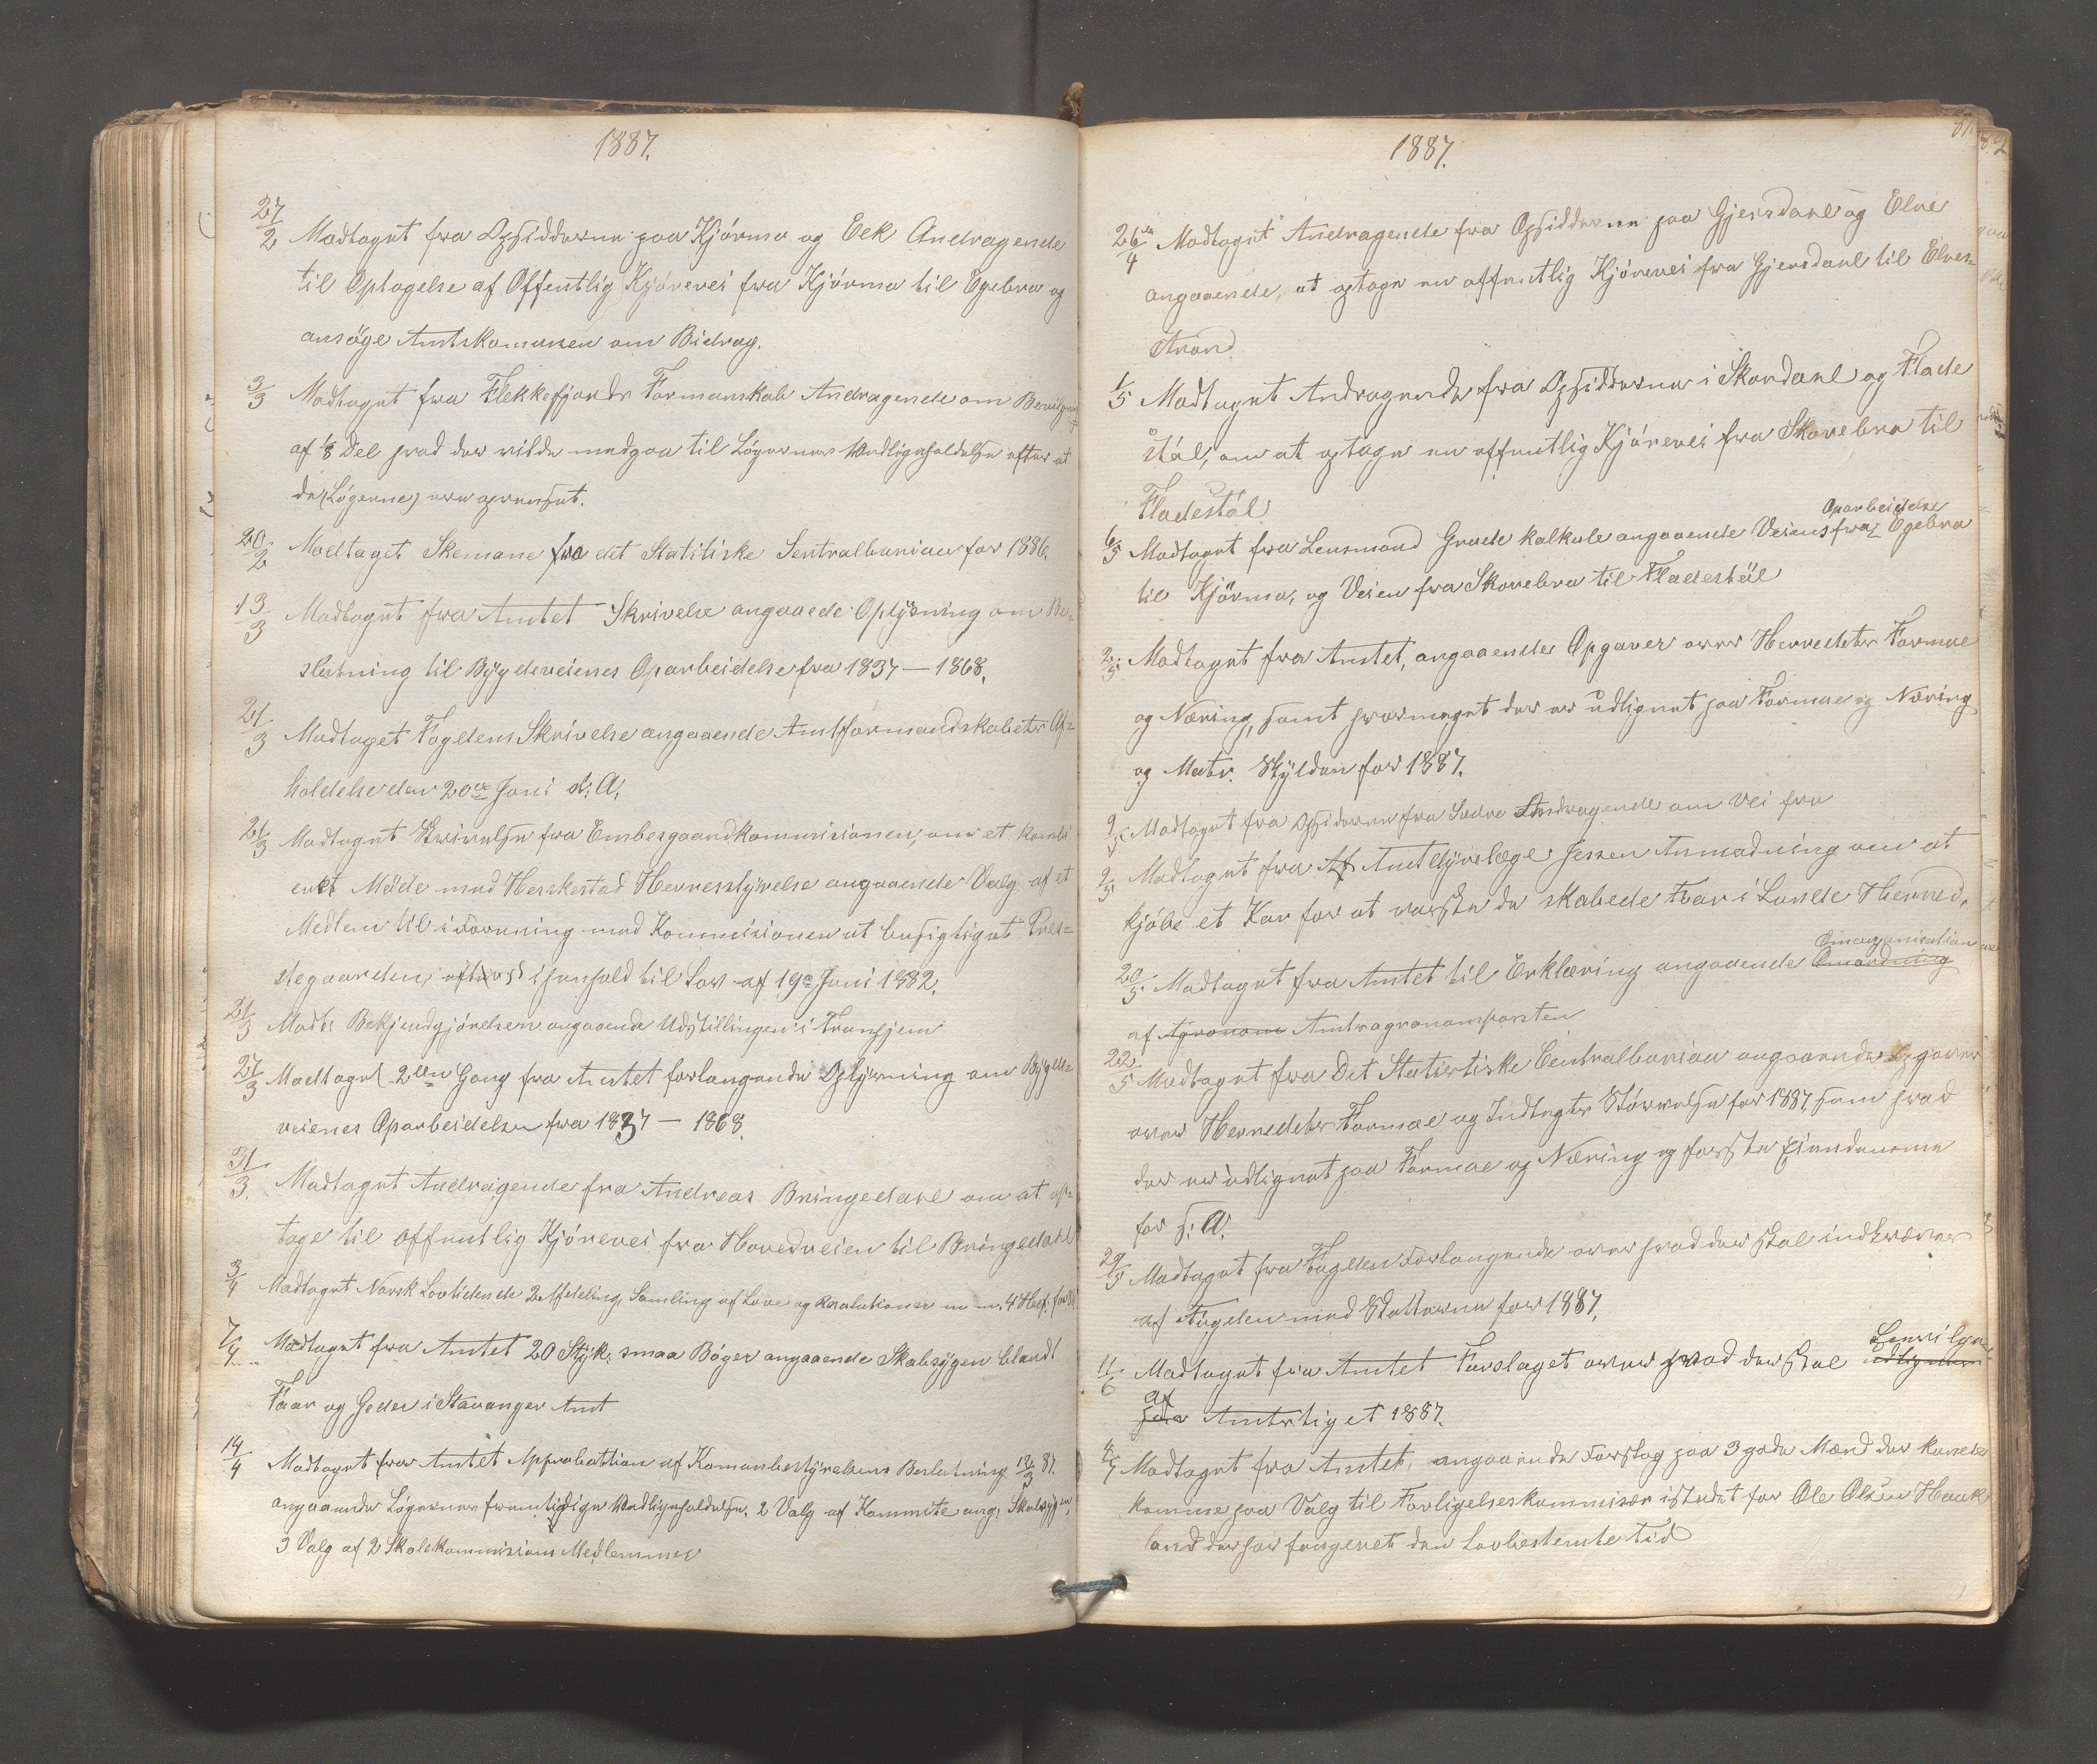 1887.
27/2 Modtaget fra Opsidderne paa Kjörmo og Eek Andragende
til Optagelse af Offentlig Kjörevei fra Kjörmo til Egebro og
ansöge Amtskomunen om Bidrag.
3/3 Modtaget fra Flekkefjords Formanskab Andragende om
af 1/8 Del hvad der vilde medgaa til Lögernes Vedligeholdelse efter at
de (Lögerne) ere oprenset.
20/2 Modtaget Skemane fra det Statitiske Sentralburiau for 1886.
13/3 Modtaget fra Amtet Skrivelse angaaede Oplysning om Be-
slutning til Bygdeveienes Oparbeidelse fra 1837 — 1868.
21/3 Modtaget Fogdens Skrivelse angaaende Amtformandskabets Af-
holdelse den 20de Juni d. A.
21/3 Modtaget Skrivelse fra Embesgaardkommisionen, om et kombi
eret Möde med Heskestad Herresstyrelse angaaende Valg af et
Medlem til i Forening med Kommisionen at besigtiget Pres-
tegaarden, i henhold til Lov af 19de Juni 1882.
21/3 Modt. Bekjendgjörelsen angaaende Udstillingen i Tronhjem
27/3 Modtaget 2den Gang fra Amtet forlangende Oplysning om Bygde-
veienes Oparbeidelse fra 1837 — 1868.
31/3. Modtaget Andragende fra Andreas Bringedahl om at op-
tage til offentlig Kjörevei fra Hovedveien til Bringedahl
3/4 Modtaget Norsk Lovtidende 2 Afdeling, Samling af Love og Resolutioner m. m. 4 Hef.
7/4 Modtaget fra Amtet 20 Styk. smaa Böger angaaende Skabsygen blandt
Faar og Geder i Stavanger Amt
14/4 Modtaget fra Amtet Approbattion af Komunbestyrelsens Beslutning 12/3 87.
angaaende Lögernes fremtidige Vedligeholdelse. 2 Valg af Kommite ang. Skabsygen
3 Valg af 2 Skolekommisions Medlemmer
1887.
82
26de/4 Modtaget Andragende fra Opsidderne paa Gjersdahl og Elve
angaaende, at optage en offentlig Kjörevei fra Gjersdahl til Elves-
strand
1/5 Modtaget Andragende fra Opsidderne i Skordahl og Flade
stöl, om at optage en offentlig Kjörevei fra Skorebro til
Fladestöl
Oparbeidelse
6/5 Modtaget fra Lensmand Grude kalkule angaaende Veiens fra Egebro
til Kjörmo, og Veien fra Skorebro til Fladestöl
2/5. Modtaget fra Amtet, angaaende Opgaver over Herredets Formue
og Næring, samt hvormeget der er udlignet paa Formue og Næring
og Matr. Skylden for 1887.
9/5 Modtaget fra Opsiderne fra Andragende om Vei fra
9/5 Modtaget fra Amtdyrelæge Jessen Anmodning om at
kjöbe et Kar for at vaske de skabede Faar i Lunde Herred.
Omorganisation
20/5. Modtaget fra Amtet til Erklæring angaaende Omordning
af Agronom Amtsagronomposten
22/5 Modtaget fra Det Statistiske Centralburiau angaaende Opgaver
over Herredets Formue og Indtægts Störrelse for 1887, som hvad
der er udlignet paa Formue og Næring og faste Eiendomme
for s. A.
29/5 Modtaget fra Fogden Forlangende over hvad der skal indkræves
af Fogden med Skatterne for 1887.
4/6 Modtaget fra Amtet Forslaget over hvad der skal udlignes
af
Amtstiget 1887.
4/7 Modtaget fra Amtet, angaaende Forslag paa 3 gode Mænd der kunde
komme paa Valg til Forligelseskommisær istedet for Ole Olsen Hauk
land der har fungeret den Lovbestemte tid